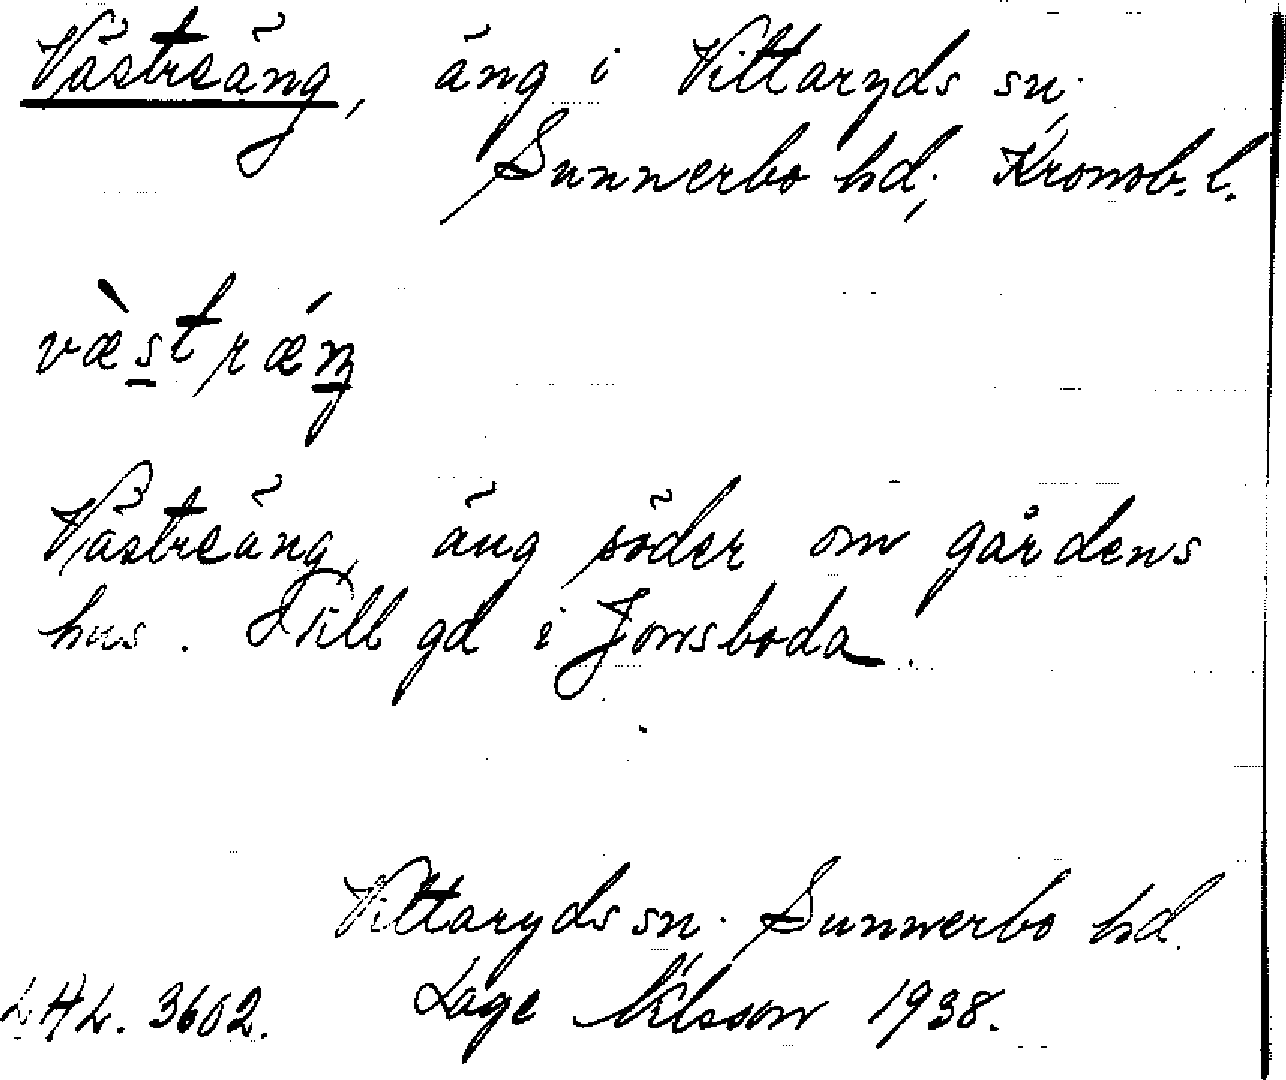 Västreäng, äng i Vittaryds sn.
Sunnerbo hd; Kronob. l.
væ̀strǽŋ
Västreäng, äng söder om gårdens
hus. Till gd i Jonsboda.
Vittaryds sn. Sunnerbo hd.
LAL. 3602. Lage Nilsson 1938.